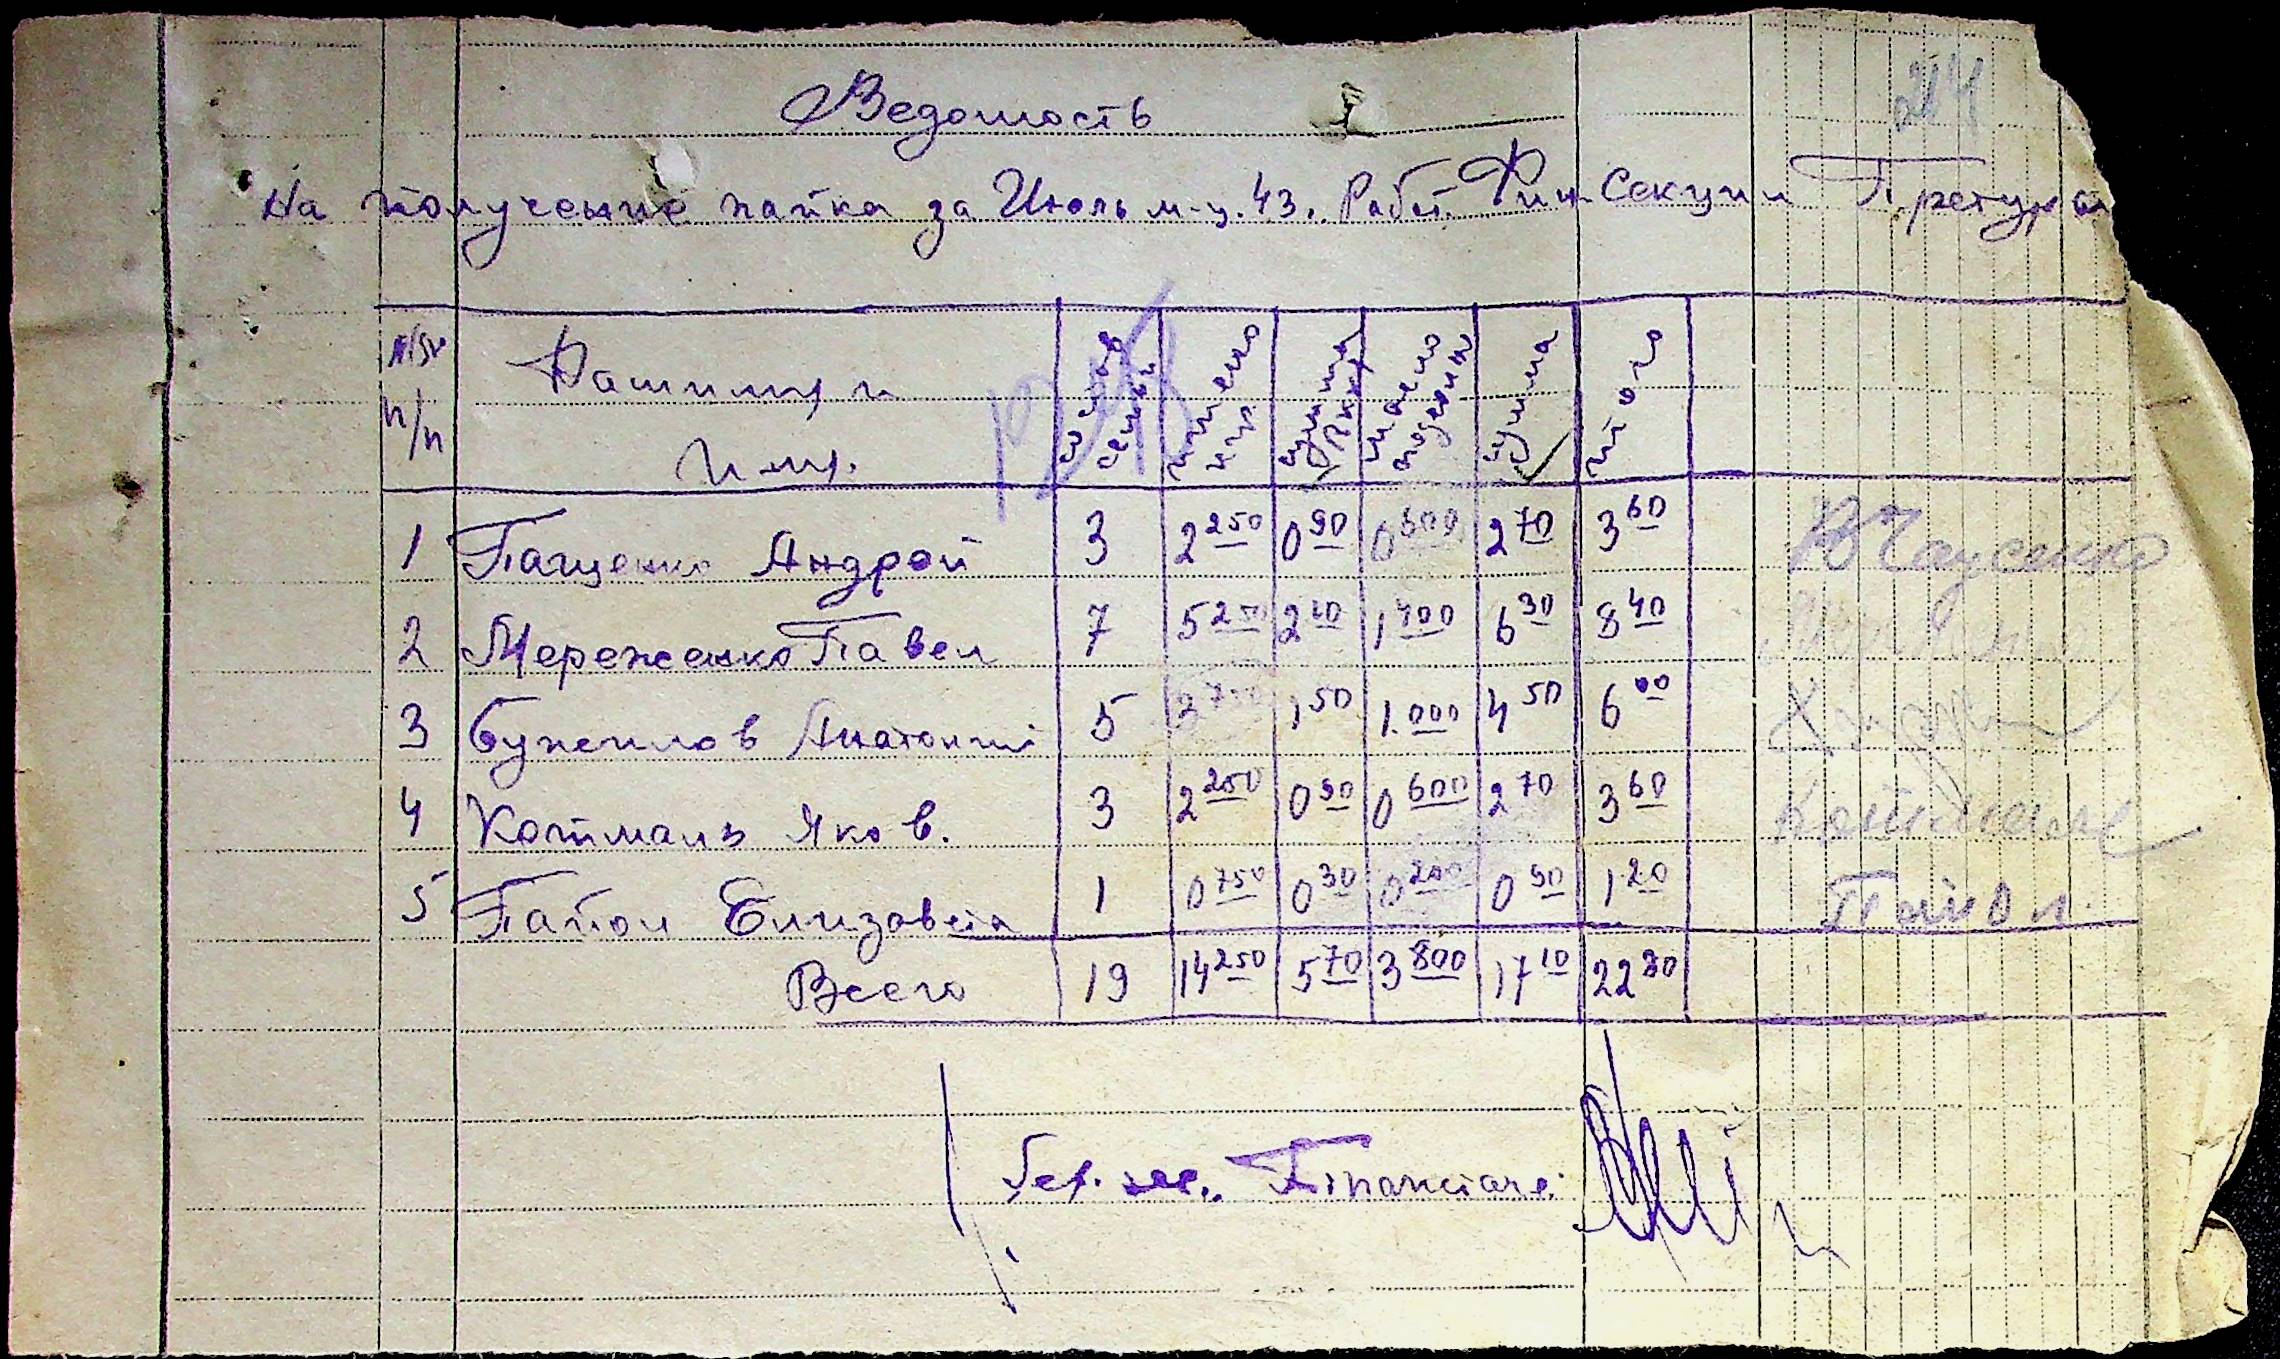 24
Ведомость
На получение пайка за Июль м-ц. 43. Работ. Фин. Секции Претуры
№№ п/п Фамилия и Имя. состав семьи сумма сумма итого
1 Пащенко Андрей 3 2 250 0 90 0 600 2 70 3 60
2 Мереженко Павел 7 5 250 2 10 1 400 6 30 8 40
3 Бужеилов Анатоний 5 3 750 1 50 1.000 4 50 6 00
4 Котмань Яков. 3 2 250 0 90 0 600 2 70 3 60 Котмань
5 Пайол Елизовета 1 0 750 0 30 0 200 0 90 1 20 Пайол.
Всего 19 14 250 5 70 3 800 17 10 22 80
Financiare